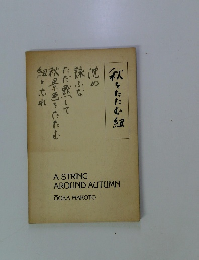 秋をたたむ紐
沈め
詠ふな
ただ黙して
秋景色をたたむ
紐となれ
A STRING
AROUND AUTUMN
ŌOKA MAKOTO